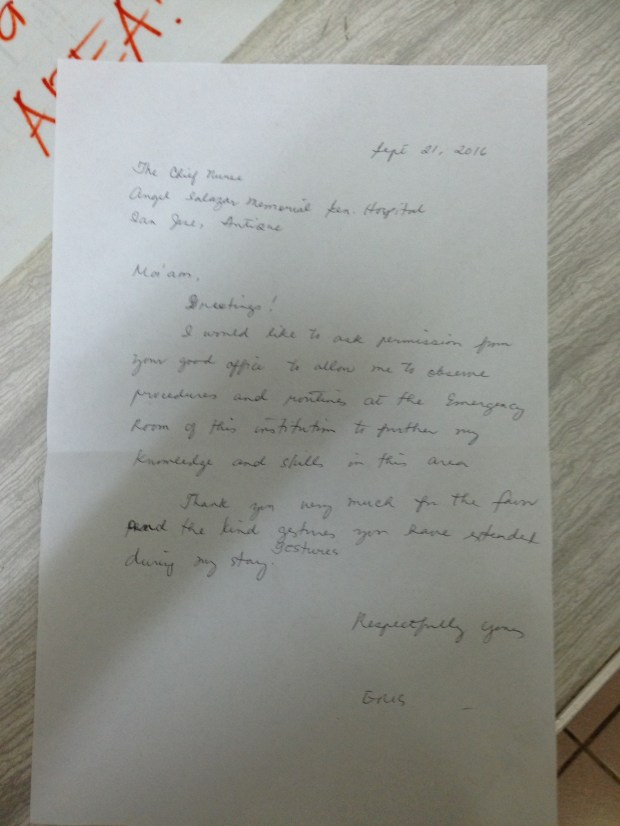 AREA!
Sept 21, 2016
The Chief Nurse
Angel Salazar Memorial Gen. Hospital
San Jose, Antique
Ma'am,
Greetings!
I would like to ask permission from
your good office to allow me to observe
procedures and routines at the Emergency
Room of this institution to further my
knowledge and skills in this area
Thank you very much for the favor
and the kind gestures you have extended
gestures
during my stay.
Respectfully yours,